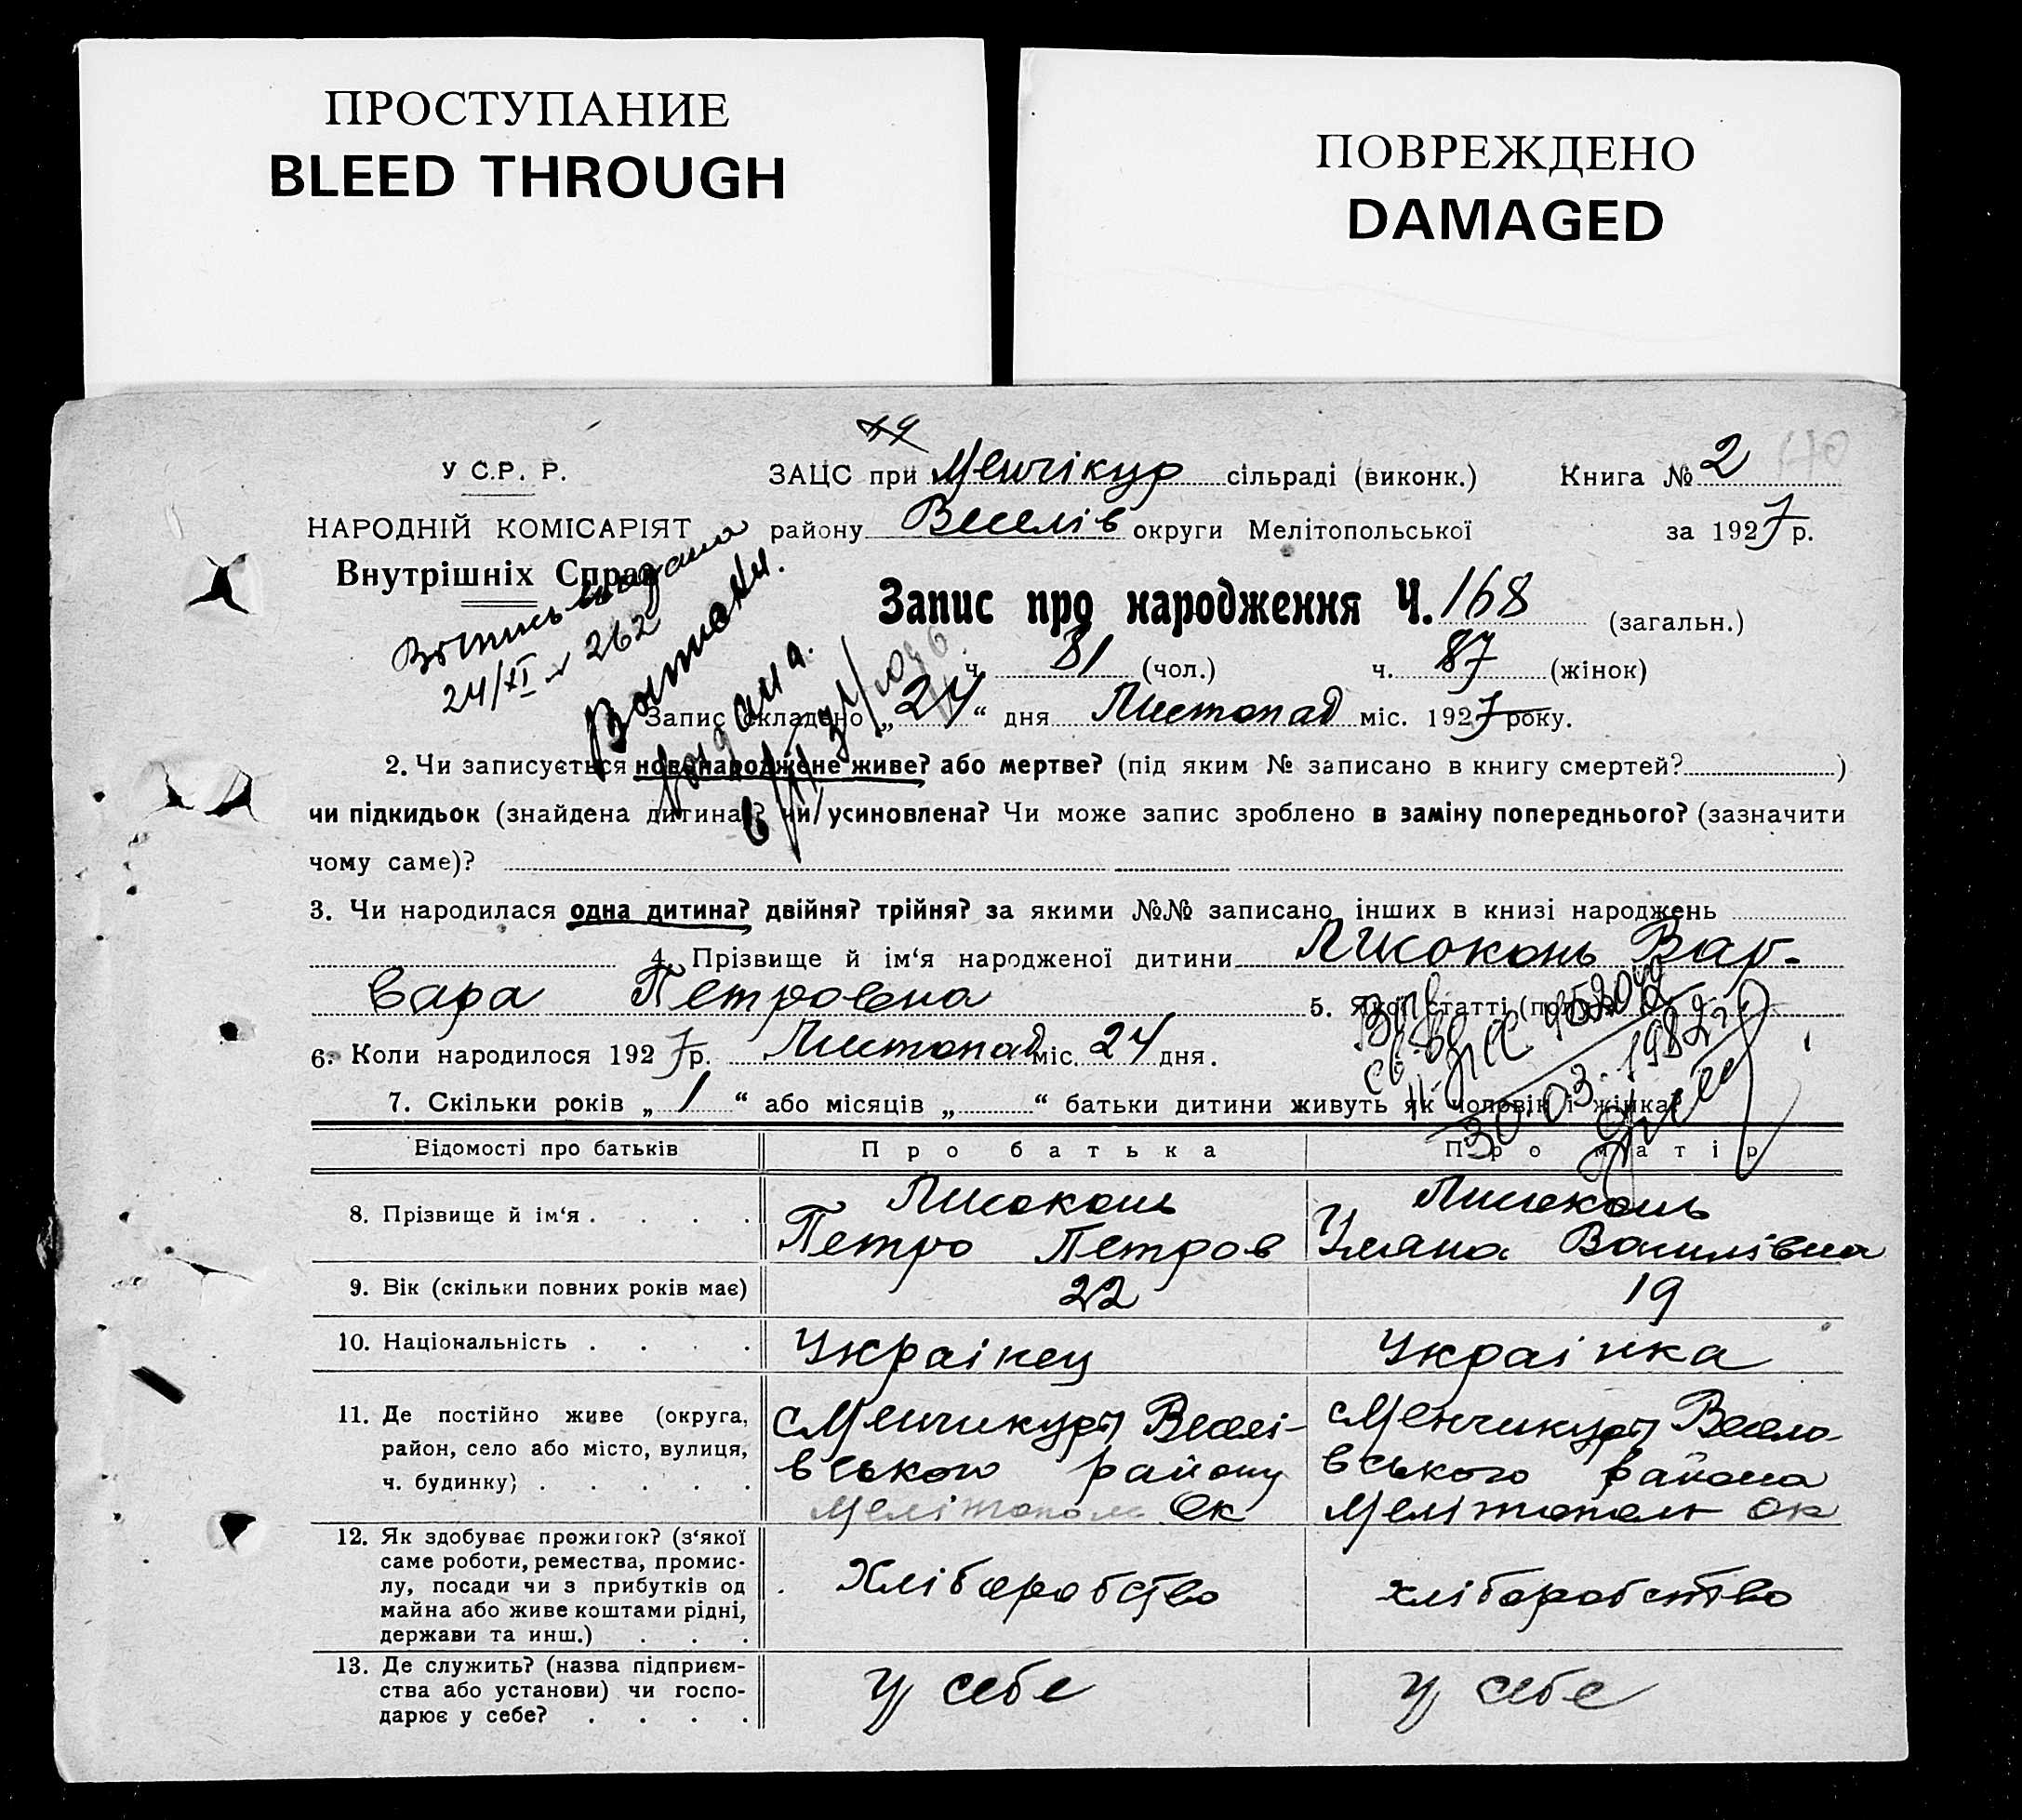 ПРОСТУПАНИЕ
BLEED THROUGH
ПОВРЕЖДЕНО
DAMAGED
У С.Р. Р.
ЗАЦС при Менчікур сільраді (виконк.) Книга № 2
НАРОДНІЙ КОМІСАРІЯТ
району Веселів округи Мелітопольської за 1927 р.
Внутрішніх Справ
Запис про народження Ч. 168 (загальн.)
24/XI 262
ч. 81 (чол.) ч. 87 (жінок)
Запис складено „24“ дня Листопад міс. 1927 року.
2. Чи записується новонароджене живе? або мертве? (під яким № записано в книгу смертей? )
чи підкидьок (знайдена дитина)? чи усиновлена? Чи може запис зроблено в заміну попереднього? (зазначити
чому саме)?
3. Чи народилася одна дитина? двійня? трійня? за якими №№ записано інших в книзі народжень
4. Прізвище й ім‘я народженої дитини Лисоконь Вар-
вара Петровна 5. Якої статті (полу)
6. Коли народилося 1927 р. Листопад міс. 24 дня.
30.03.1982
7. Скільки років „1“ або місяців „ “ батьки дитини живуть як чоловік і жінка?
Відомості про батьків Про батька Про матір
8. Прізвище й ім‘я . . . . Лисоконь Лисоконь
Петро Петров Уляна Василівна
9. Вік (скільки повних років має) 22 19
10. Національність . . . . Украінец Украінка
11. Де постійно живе (округа, с Менчикури Веселі- с Менчикури Весело-
район, село або місто, вулиця, вського району вського района
ч. будинку) . . . . . Мелітополь Ок Мелітополь Ок
12. Як здобуває прожиток? (з‘якої
саме роботи, ремества, промис-
лу, посади чи з прибутків од Хліборобство хліборобство
майна або живе коштами рідні,
держави та инш.) . . .
13. Де служить? (назва підприєм-
ства або установи) чи госпо- У себе У себе
дарює у себе? . . . .